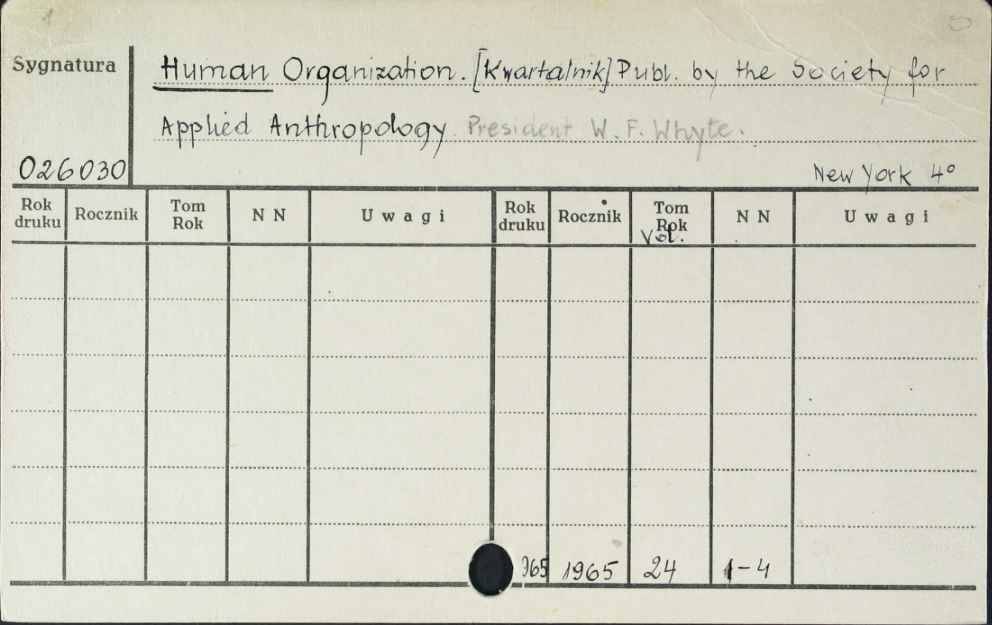 Sygnatura
Human Organization. [Kwartalnik] Publ. by the Society for
Applied Anthropology. President W. F. Whyte.
026030
New York 4°
Rok druku Rocznik Tom Rok N N Uwagi Rok druku Rocznik Tom Rok Vol. N N Uwagi
965 1965 24 1-4